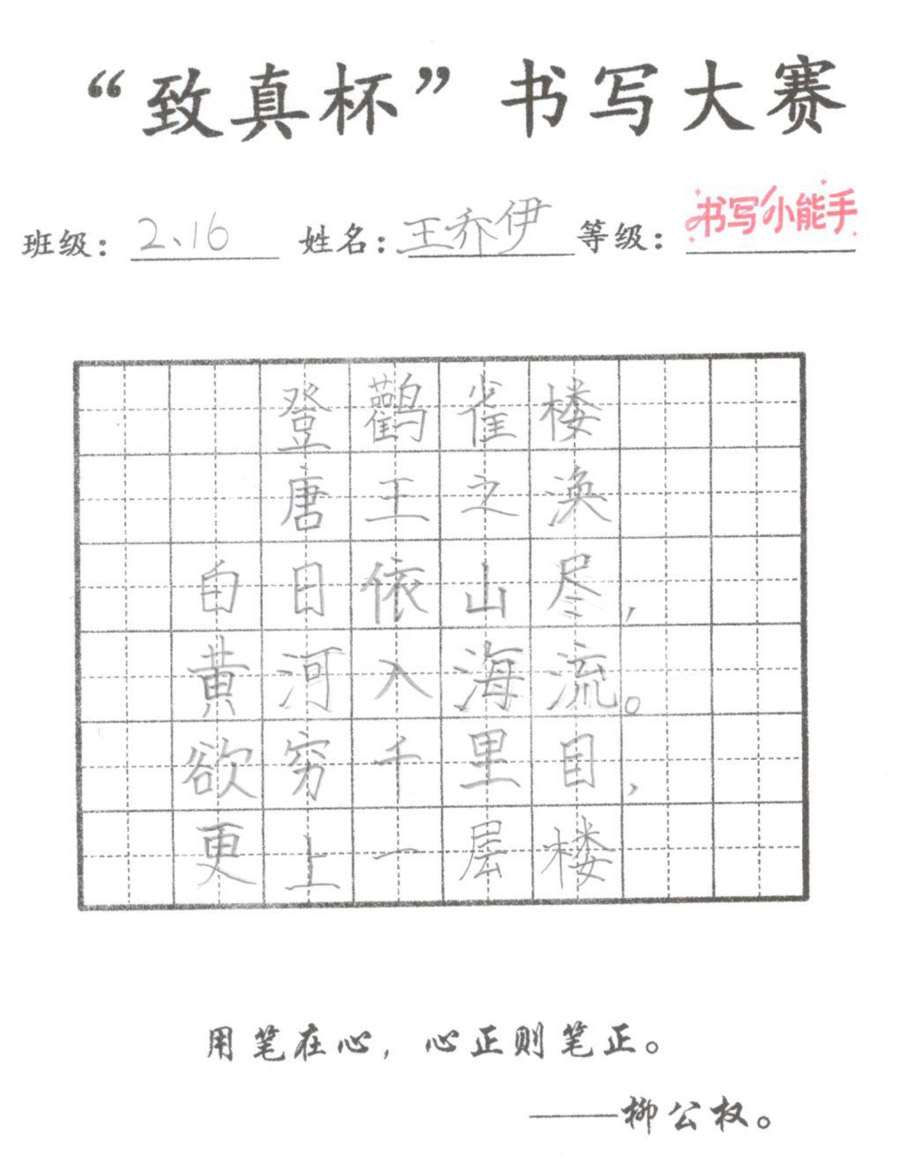 “致真杯”书写大赛
班级：2、16 姓名：王乔伊 等级：书写小能手
登鹳雀楼
唐王之涣
白日依山尽，
黄河入海流。
欲穷千里目，
更上一层楼
用笔在心，心正则笔正。
——柳公权。